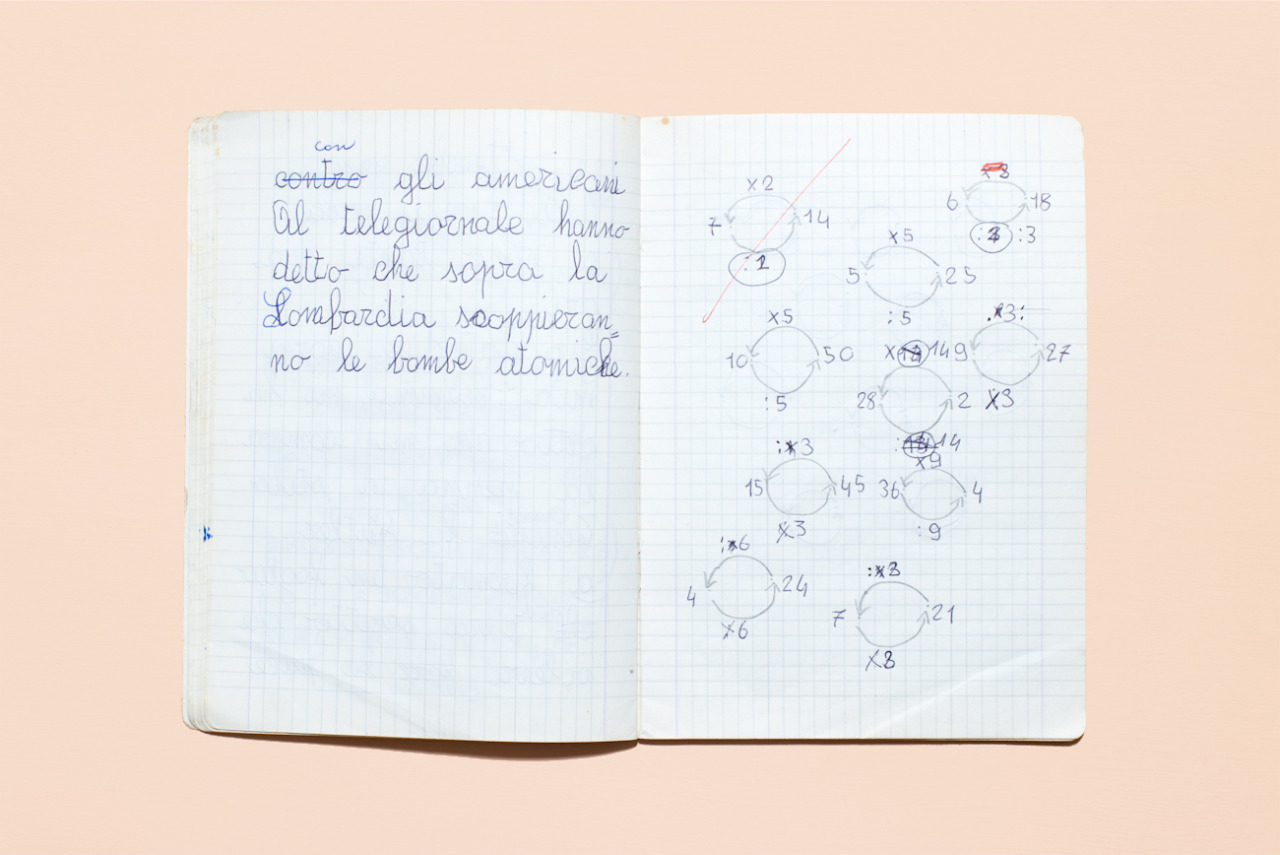 con
contro gli americani
Al telegiornale hanno
detto che sopra la
Lombardia scoppieran=
no le bombe atomiche.
x2
7 14
: 1
x3
6 18
:3
x5
5 25
:5
x5
10 50
:5
x 14
28 2
: 14
:3
9 27
x3
:3
15 45
x3
x9
36 4
:9
:6
4 24
x6
:3
7 21
x3